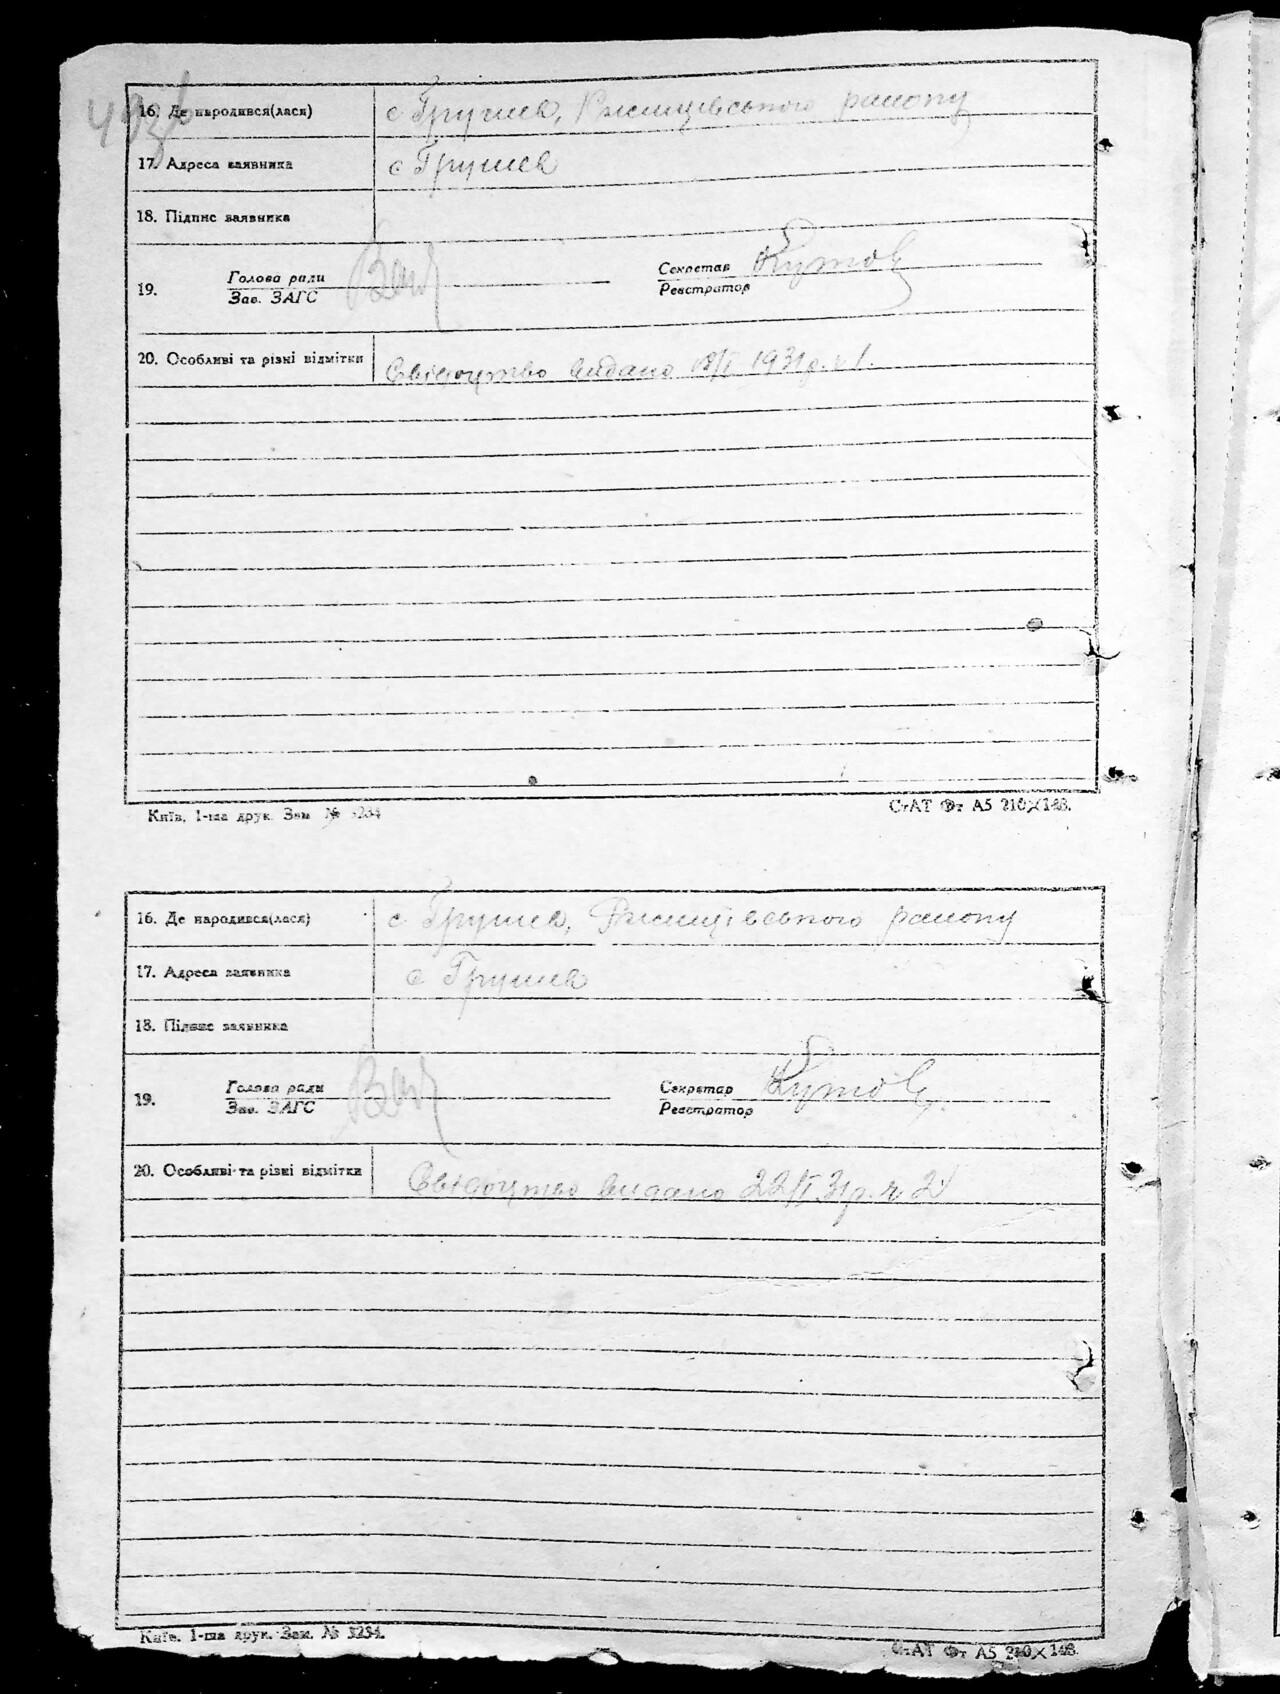 16. Де народився(лася) с Грушев, Ржищівського району
17. Адреса заявника с Грушев
18. Підпис заявника
19. Голова ради Секретар
Зав. ЗАГС Реєстратор
20. Особливі та різні відмітки Свідоцтво видано 18/I 1931р. ч 1.
Київ, 1-ша друк. Зам. № 3234 СтАТ Фт А5 210×148.
16. Де народився(лася) с. Грушев, Ржищівського району
17. Адреса заявника с Грушев
18. Підпис заявника
19. Голова ради Секретар
Зав. ЗАГС Реєстратор
20. Особливі та різні відмітки Свідоцтво видано 22/I 31р. ч 2
Київ. 1-ша друк. Зам. № 3234. СтАТ Фт А5 210×148